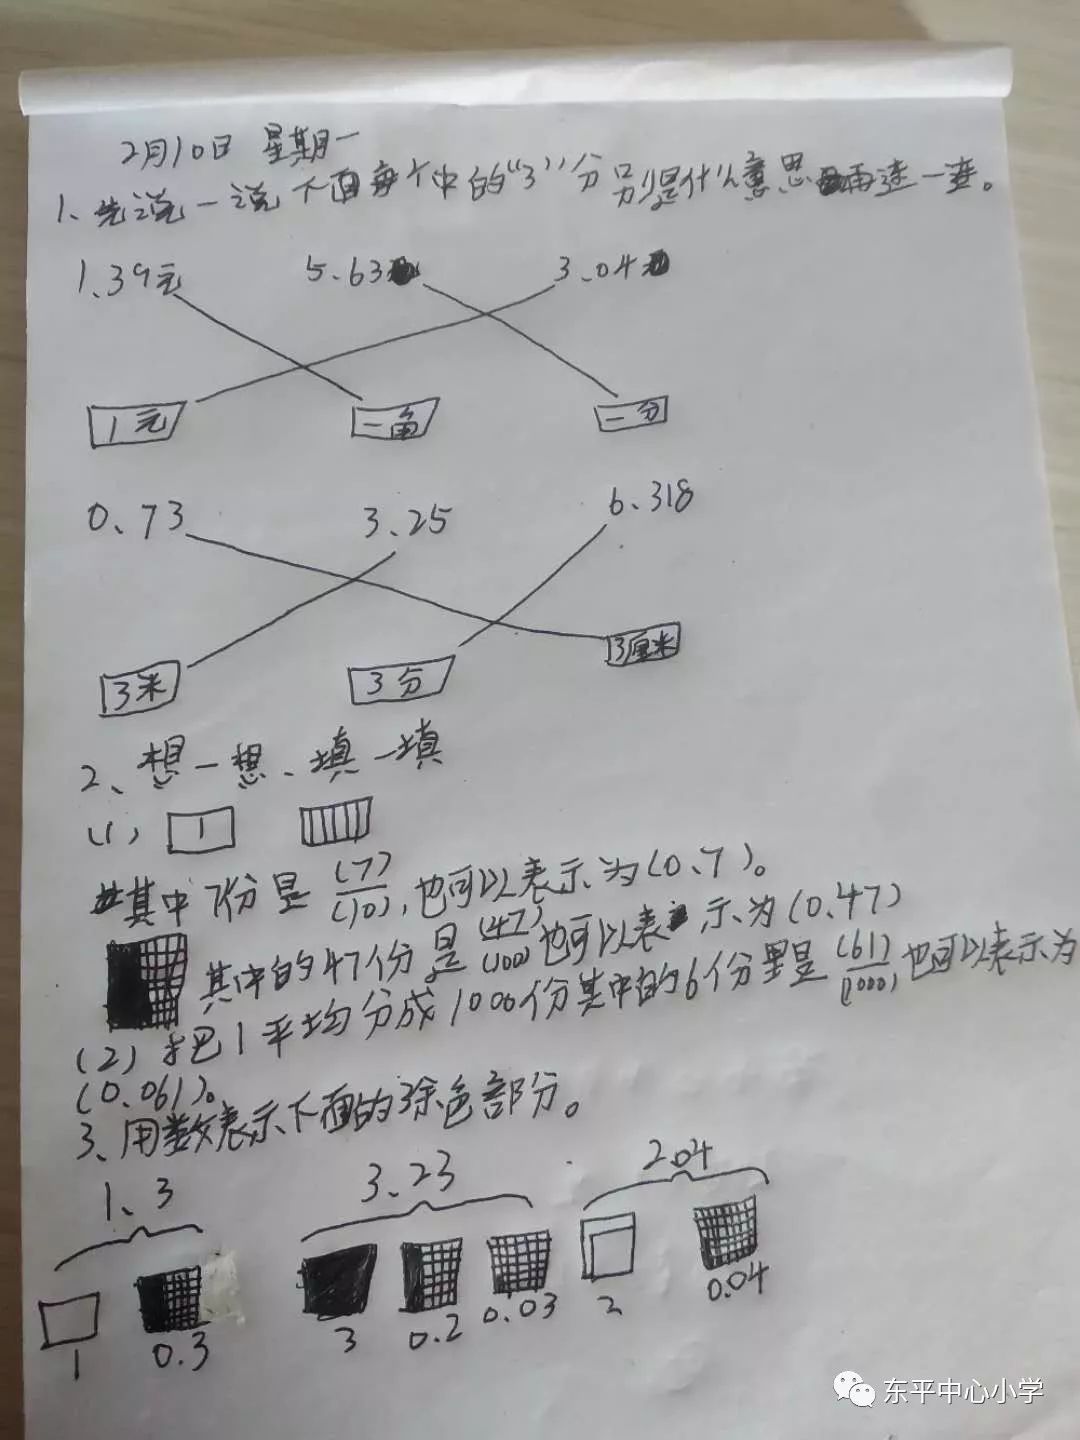 2月10日 星期一
1、先说一说下面每个中的“3”分别是什么意思再连一连。
1.39元 5.63 3.04
1元 一角 一分
0.73 3.25 6.318
3米 3分 3厘米
2、想一想、填一填
(1) 1
其中7份是(7)/(10),也可以表示为(0.7)。
其中的47份是(47)/(100)也可以表示为(0.47)
(2)把1平均分成1000份其中的6份是(61)/(1000)也可以表示为
(0.061)。
3、用数表示下面的涂色部分。
1.3 3.23 2.04
1 0.3 3 0.2 0.03 2 0.04
东平中心小学